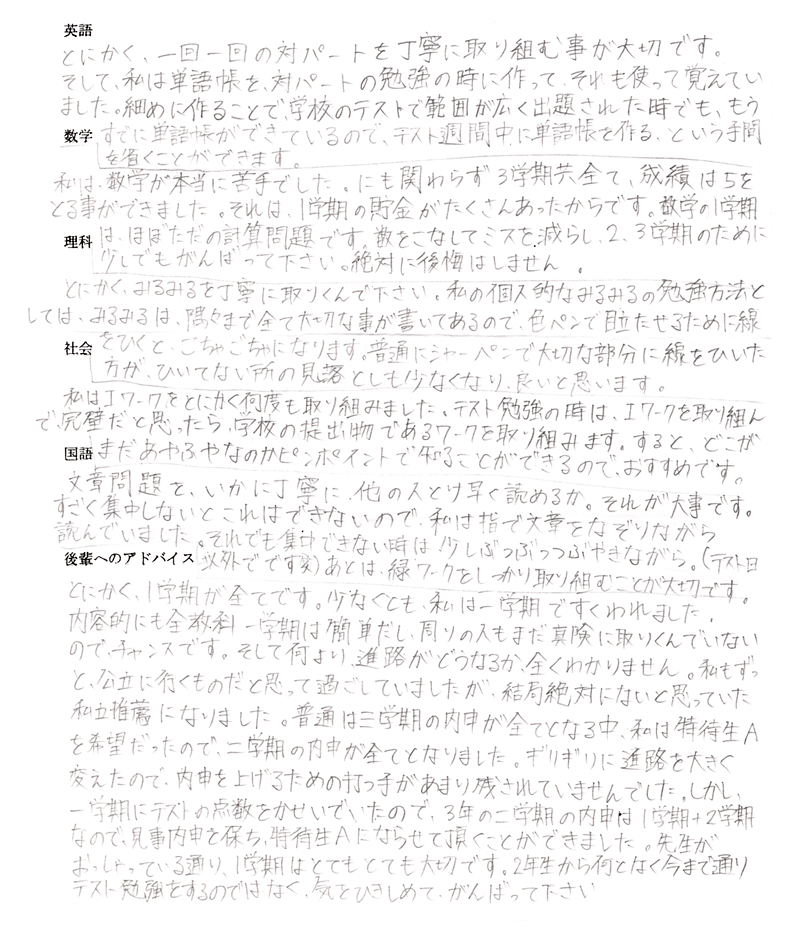 英語
とにかく、一回一回の対パートを丁寧に取り組む事が大切です。
そして、私は単語帳を、対パートの勉強の時に作って、それも使って覚えてい
ました。細めに作ることで学校のテストで範囲が広く出題された時でも、もう
すでに単語帳ができているので、テスト週間中に単語帳を作る、という手間
を省くことができます。
数学
私は、数学が本当に苦手でした。にも関わらず3学期共全て、成績は5を
とる事ができました。それは、1学期の貯金がたくさんあったからです。数学の1学期
は、ほぼただの計算問題です。数をこなしてミスを減らし、2、3学期のために
少しでもがんばって下さい。絶対に後悔はしません。
理科
とにかく、みるみるを丁寧に取りくんで下さい。私の個人的なみるみるの勉強方法と
しては、みるみるは、隅々まで全て大切な事が書いてあるので、色ペンで目立たせるために線
をひくと、ごちゃごちゃになります。普通にシャーペンで大切な部分に線をひいた
方が、ひいてない所の見落としも少なくなり、良いと思います。
社会
私はIワークをとにかく何度も取り組みました。テスト勉強の時は、Iワークを取り組ん
で、完璧だと思ったら、学校の提出物であるワークを取り組みます。すると、どこが
まだあやふやなのかピンポイントで知ることができるので、おすすめです。
国語
文章問題を、いかに丁寧に、他の人とけ早く読めるか。それが大事です。
すごく集中しないとこれはできないので、私は指で文章をなぞりながら
読んでいました。それでも集中できない時は少しぶつぶっつぶやきながら。(テスト日
以外でです笑)あとは、緑ワークをしっかり取り組むことが大切です。
後輩へのアドバイス
とにかく、1学期が全てです。少なくとも、私は一学期ですくわれました。
内容的にも全教科一学期は簡単だし、周りの人もまだ真険に取りくんでいない
ので、チャンスです。そして何より、進路がどうなるか、全くわかりません。私もずっ
と、公立に行くものだと思って過ごしていましたが、結局絶対にないと思っていた
私立推薦になりました。普通は三学期の内申が全てとなる中、私は特待生A
を希望だったので、二学期の内申が全てとなりました。ギリギリに進路を大きく
変えたので、内申を上げるための打つ手があまり残されていませんでした。しかし、
一学期にテストの点数をかせいでいたので、3年の二学期の内申は1学期+2学期
なので、見事内申を保ち、特待生Aにならせて頂くことができました。先生が
おっしゃっている通り、1学期はとてもとても大切です。2年生から何となく今まで通り
テスト勉強をするのではなく、気をひきしめて、がんばって下さい